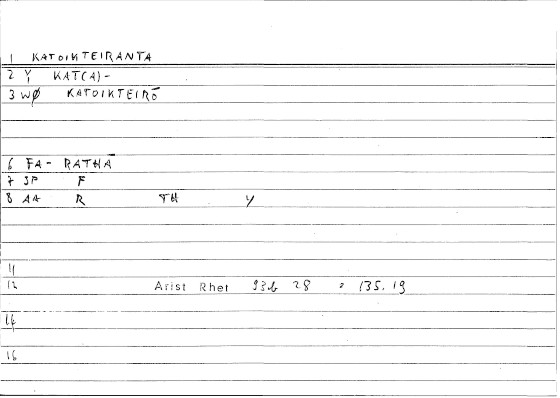 1 KATOIKTEIRANTA
2 Y, KAT(A)-
3 WØ KATOIKTEIRŌ
6 FA- RATHĀ
7 SP F
8 AA R TH Y
11
12 Arist Rhet 93b 28 = 135.19
14
16